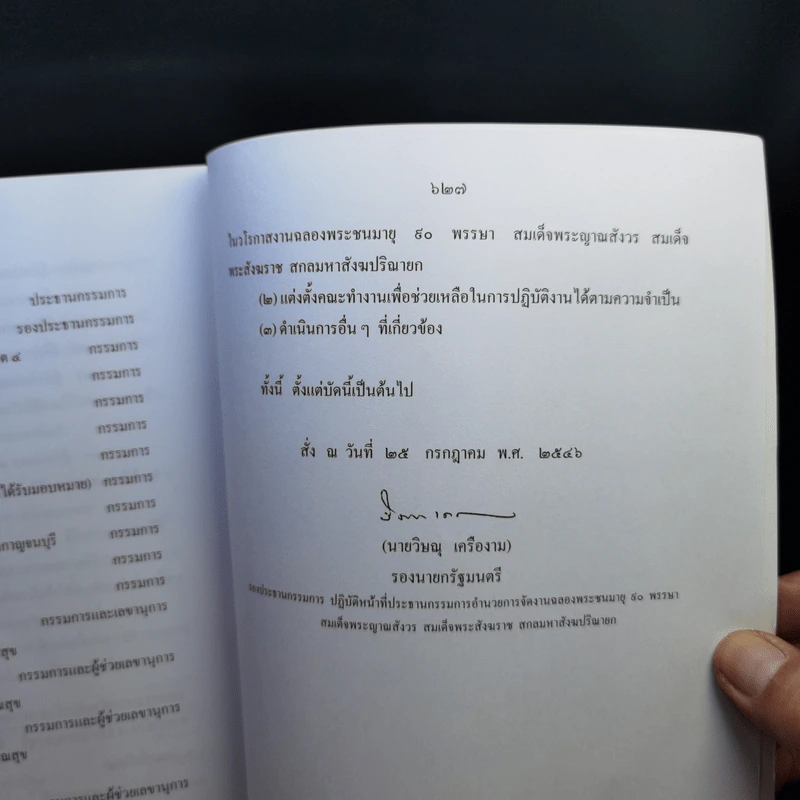 ประธานกรรมการ
รองประธานกรรมการ
ต ๔ กรรมการ
กรรมการ
กรรมการ
กรรมการ
กรรมการ
ได้รับมอบหมาย) กรรมการ
กรรมการ
กาญจนบุรี กรรมการ
กรรมการ
กรรมการ
กรรมการและเลขานุการ
สุข
กรรมการและผู้ช่วยเลขานุการ
ณสุข
กรรมการและผู้ช่วยเลขานุการ
ณสุข
กรรมการและผู้ช่วยเลขานุการ
๖๒๗
ในวโรกาสงานฉลองพระชนมายุ ๙๐ พรรษา สมเด็จพระญาณสังวร สมเด็จ
พระสังฆราช สกลมหาสังฆปริณายก
(๒) แต่งตั้งคณะทำงานเพื่อช่วยเหลือในการปฏิบัติงานได้ตามความจำเป็น
(๓) ดำเนินการอื่น ๆ ที่เกี่ยวข้อง
ทั้งนี้ ตั้งแต่บัดนี้เป็นต้นไป
สั่ง ณ วันที่ ๒๕ กรกฎาคม พ.ศ. ๒๕๔๖
(นายวิษณุ เครืองาม)
รองนายกรัฐมนตรี
รองประธานกรรมการ ปฏิบัติหน้าที่ประธานกรรมการอำนวยการจัดงานฉลองพระชนมายุ ๙๐ พรรษา
สมเด็จพระญาณสังวร สมเด็จพระสังฆราช สกลมหาสังฆปริณายก